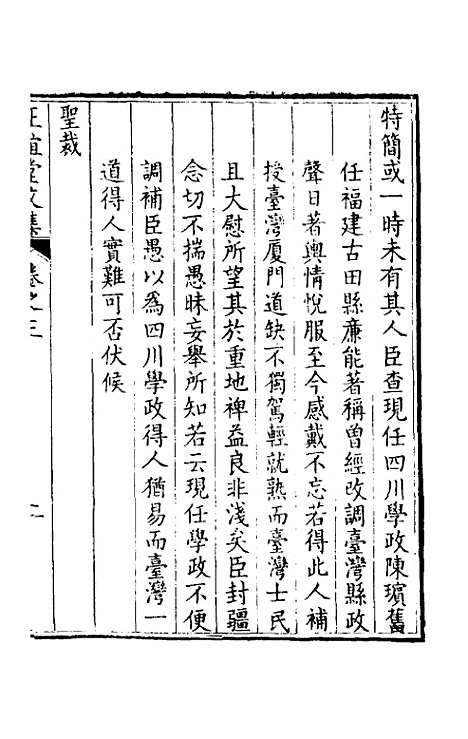 特簡或一時未有其人臣查現任四川學政陳璸舊
任福建古田縣亷能著稱曾經改調臺灣縣政
聲日著輿情悅服至今感戴不忘若得此人補
授臺灣厦門道缺不獨駕輕就熟而臺灣士民
且大慰所望其於重地裨益良非淺矣臣封疆
念切不揣愚昧妄舉所知若云現任學政不便
調補臣愚以為四川學政得人猶易而臺灣一
道得人實難可否伏候
聖裁
正誼堂文集
卷之二